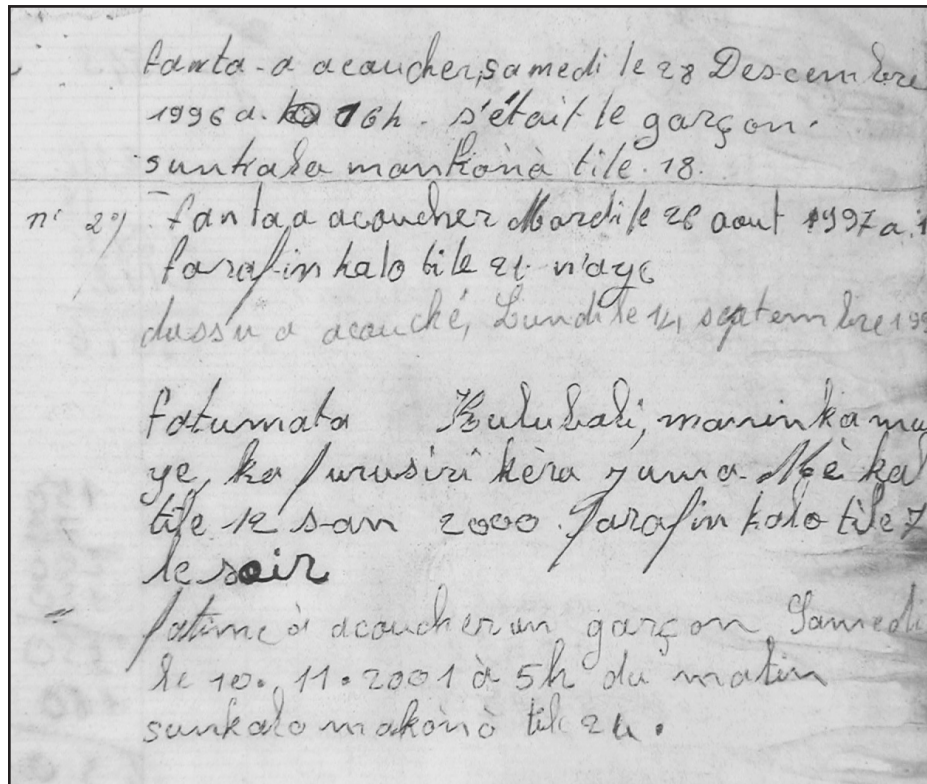 fanta-a acaucher, samedi le 28 Descembre
1996 a. 16h. s'était le garçon.
sunkala mankònà tile. 18.
n° 2°/ fanta a acaucher Mardi le 26 aout 1997 a. 1
farafin kalo tile 21 n'aye
dassu a acauché, Lundi le 14, septembre 199
fatumata Kulubali, maninka mu
ye, ka furusiri kèra zuma. Mè kal
tile 12 s-an 2000. farafin kalo tile 7
le soir
= fatime à acaucher un garçon Samedi
le 10. 11. 2001 à 5h du matin
sunkalo makònò tile 24.